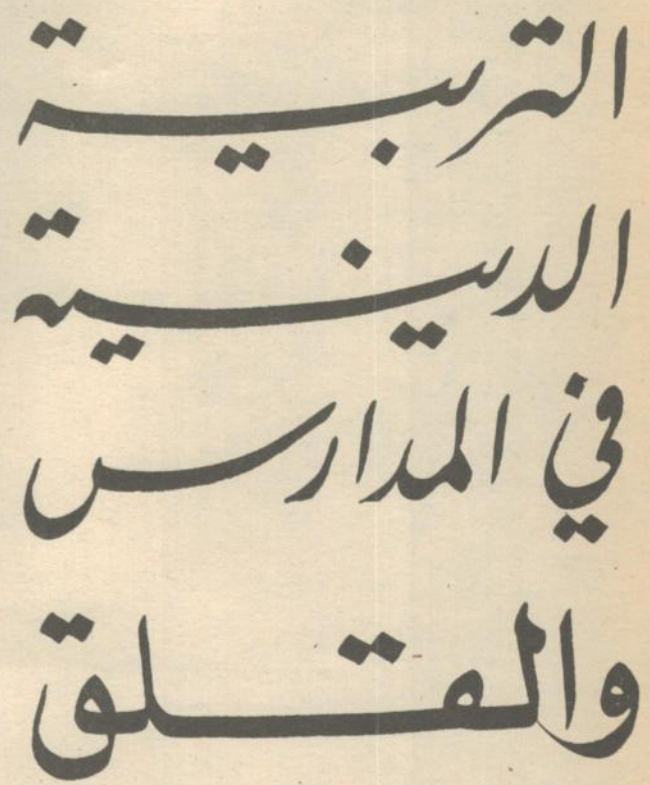 التربية
الدينية
في المدارس
والقلق